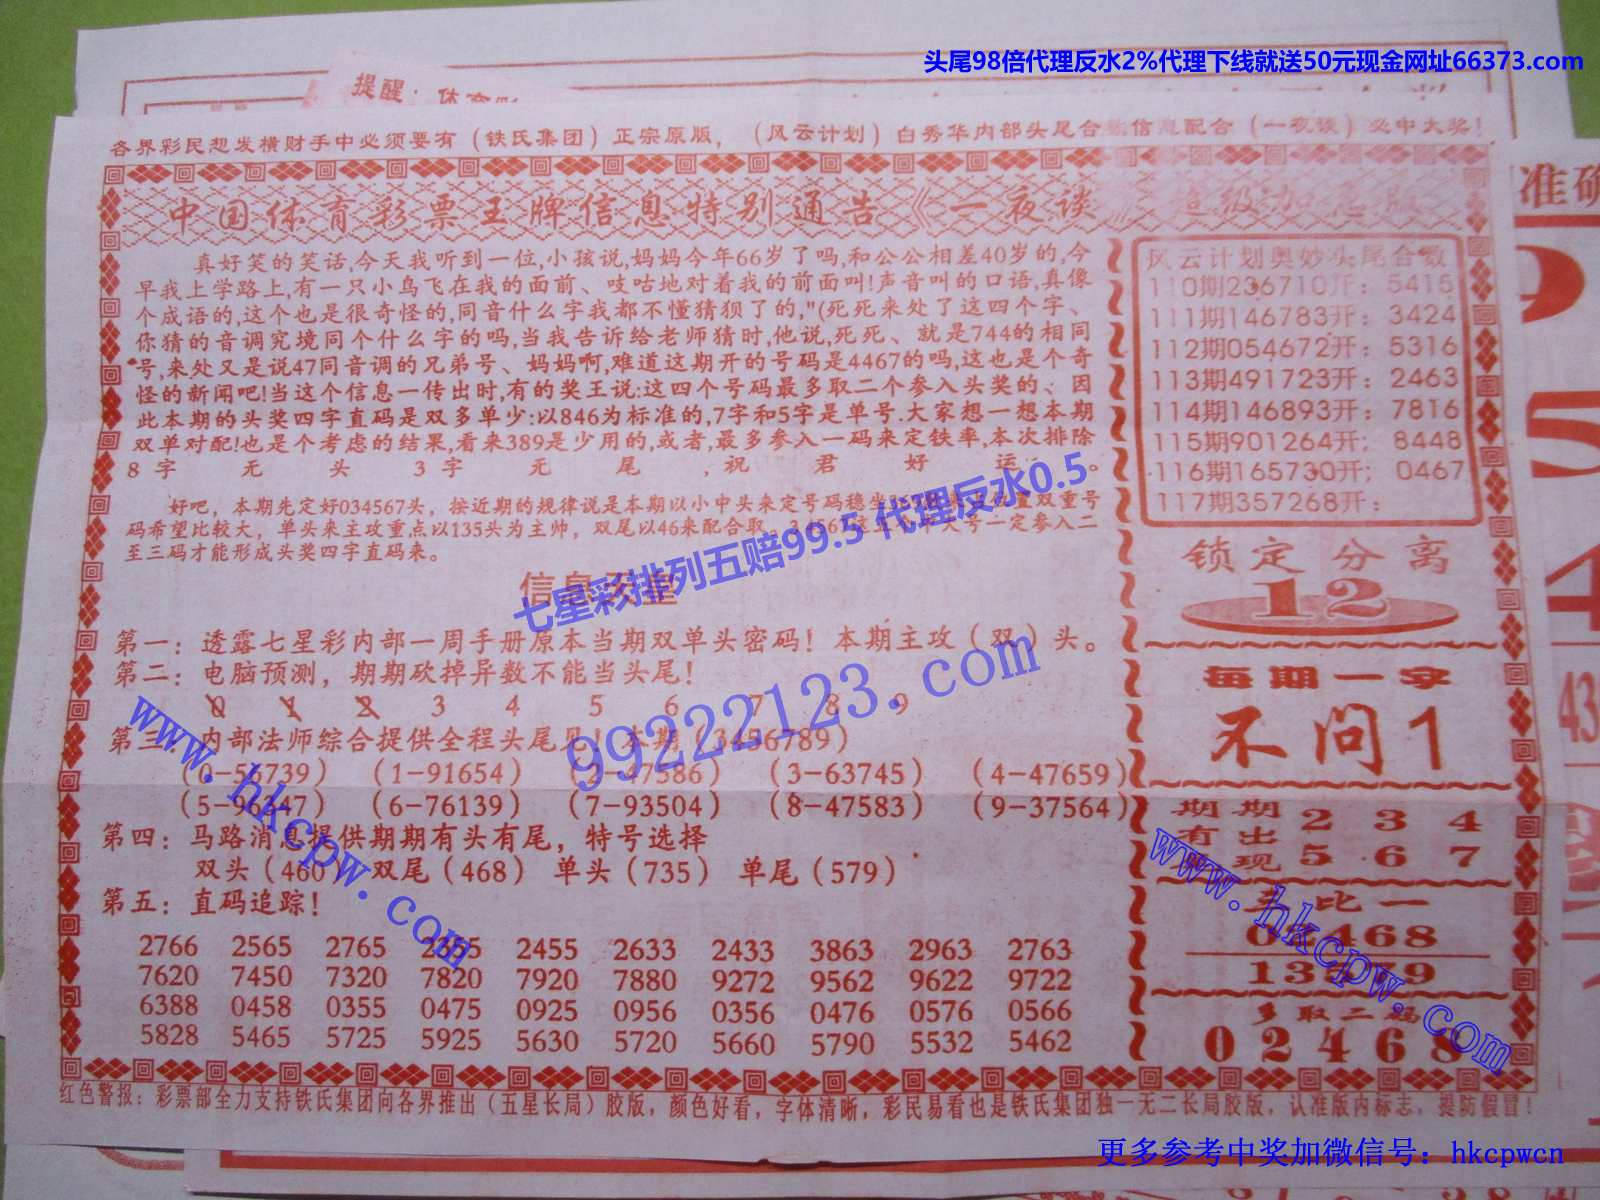 头尾98倍代理反水2%代理下线就送50元现金网址66373.com
提醒：体育彩
各界彩民想发横财手中必须要有（铁氏集团）正宗原版，（风云计划）白秀华内部头尾合数信息配合（一夜谈）必中大奖！
准确
中国体育彩票王牌信息特别通告《一夜谈》超级加息版
真好笑的笑话,今天我听到一位,小孩说,妈妈今年66岁了吗,和公公相差40岁的,今
早我上学路上,有一只小鸟飞在我的面前、吱咕地对着我的前面叫!声音叫的口语,真像
个成语的,这个也是很奇怪的,同音什么字我都不懂猜狈了的,"(死死来处了这四个字、
你猜的音调究境同个什么字的吗,当我告诉给老师猜时,他说,死死、就是744的相同
号,来处又是说47同音调的兄弟号、妈妈啊,难道这期开的号码是4467的吗,这也是个奇
怪的新闻吧!当这个信息一传出时,有的奖王说:这四个号码最多取二个参入头奖的、因
此本期的头奖四字直码是双多单少:以846为标准的,7字和5字是单号.大家想一想本期
双单对配!也是个考虑的结果,看来389是少用的,或者,最多参入一码来定铁率,本次排除
8字无头3字无尾,祝君好运。
好吧，本期先定好034567头，按近期的规律说是本期以小中头来定号码稳坐
双重号
码希望比较大，单头来主攻重点以135头为主帅，双尾以46来配合取。34567这
号一定参入二
至三码才能形成头奖四字直码来。
七星彩排列五赔99.5 代理反水0.5
信息天堂
第一：透露七星彩内部一周手册原本当期双单头密码！本期主攻（双）头。
第二：电脑预测，期期砍掉异数不能当头尾！
0 1 2 3 4 5 6 7 8 9
99222123.com
www.hkcpw.com
第三：内部法师综合提供全程头尾见！本期（3456789）
-56739） （1-91654） （2-47586） （3-63745） （4-47659）
（5-96347） （6-76139） （7-93504） （8-47583） （9-37564）
第四：马路消息提供期期有头有尾，特号选择
双头（460） 双尾（468） 单头（735） 单尾（579）
第五：直码追踪！
2766 2565 2765 2355 2455 2633 2433 3863 2963 2763
7620 7450 7320 7820 7920 7880 9272 9562 9622 9722
6388 0458 0355 0475 0925 0956 0356 0476 0576 0566
5828 5465 5725 5925 5630 5720 5660 5790 5532 5462
风云计划奥妙头尾合数
110期236710开：5415
111期146783开：3424
112期054672开：5316
113期491723开：2463
114期146893开：7816
115期901264开；8448
116期165730开；0467
117期357268开：
锁定分离
12
每期一字
不问1
期期 2 3 4
有出
现 5 6 7
www.hkcpw.com
三比一
02468
13579
多取二码
02468
43
红色警报：彩票部全力支持铁氏集团向各界推出（五星长局）胶版，颜色好看，字体清晰，彩民易看也是铁氏集团独一无二长局胶版，认准版内标志，提防假冒！
更多参考中奖加微信号：hkcpwcn